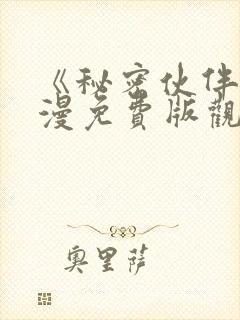 《秘密伙伴
漫免費版觀
奧里薩